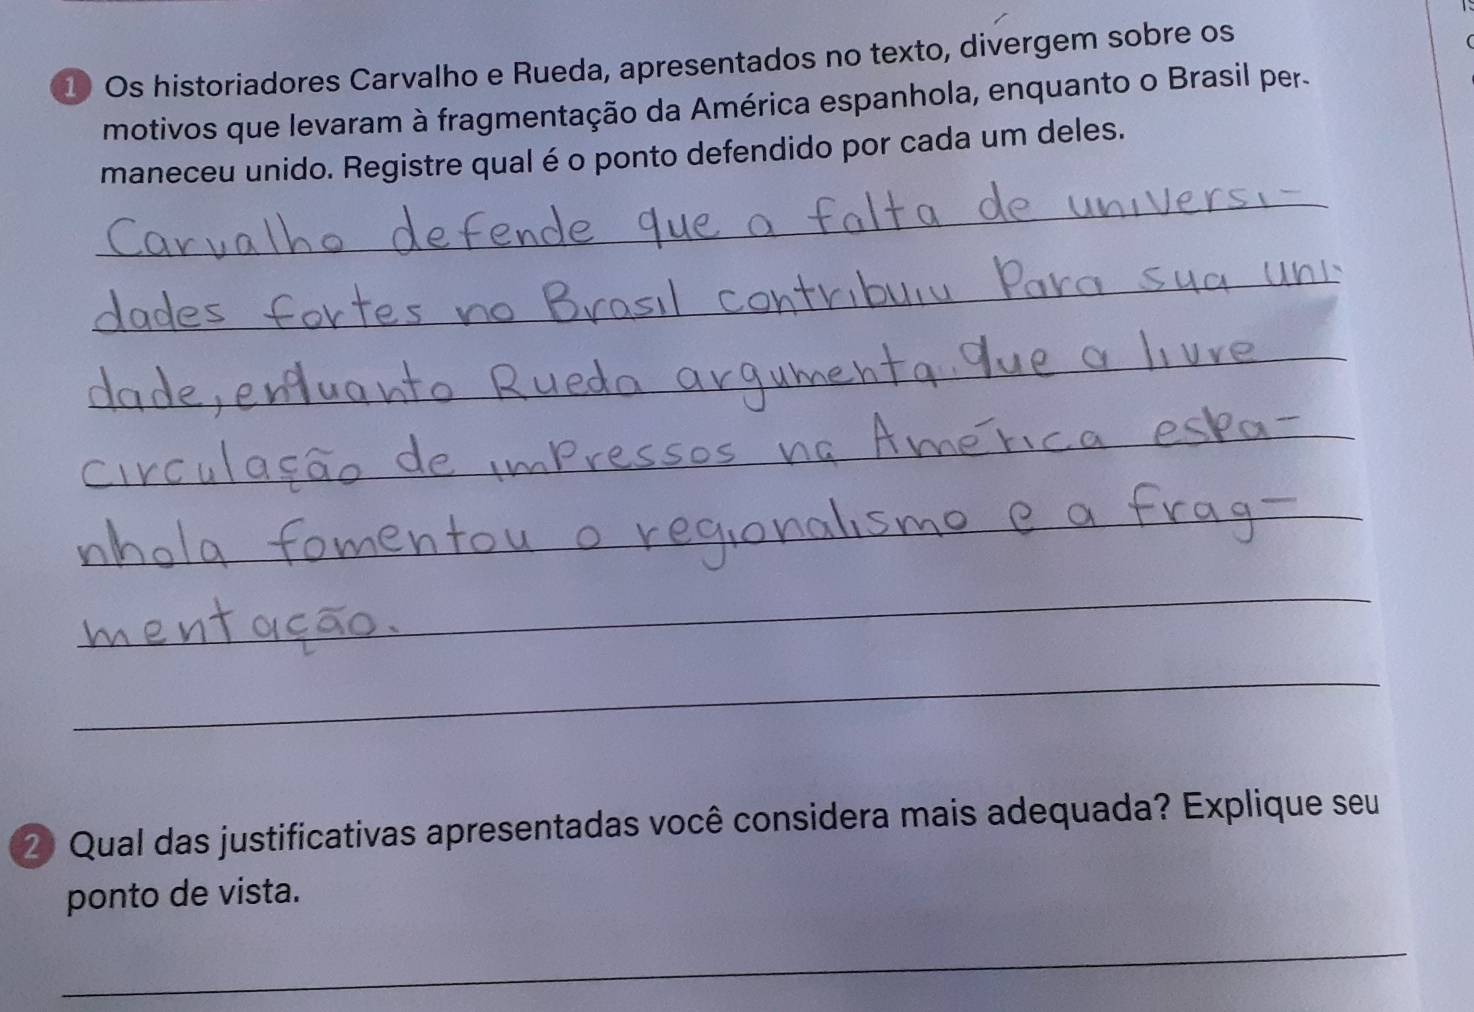 1 Os historiadores Carvalho e Rueda, apresentados no texto, divergem sobre os
motivos que levaram à fragmentação da América espanhola, enquanto o Brasil per-
maneceu unido. Registre qual é o ponto defendido por cada um deles.
Carvalho defende que a falta de universi-
dades fortes no Brasil contribuiu Para sua uni-
dade, enquanto Rueda argumenta que a livre
circulação de imPressos na América espa-
nhola fomentou o regionalismo e a frag-
mentação.
2 Qual das justificativas apresentadas você considera mais adequada? Explique seu
ponto de vista.